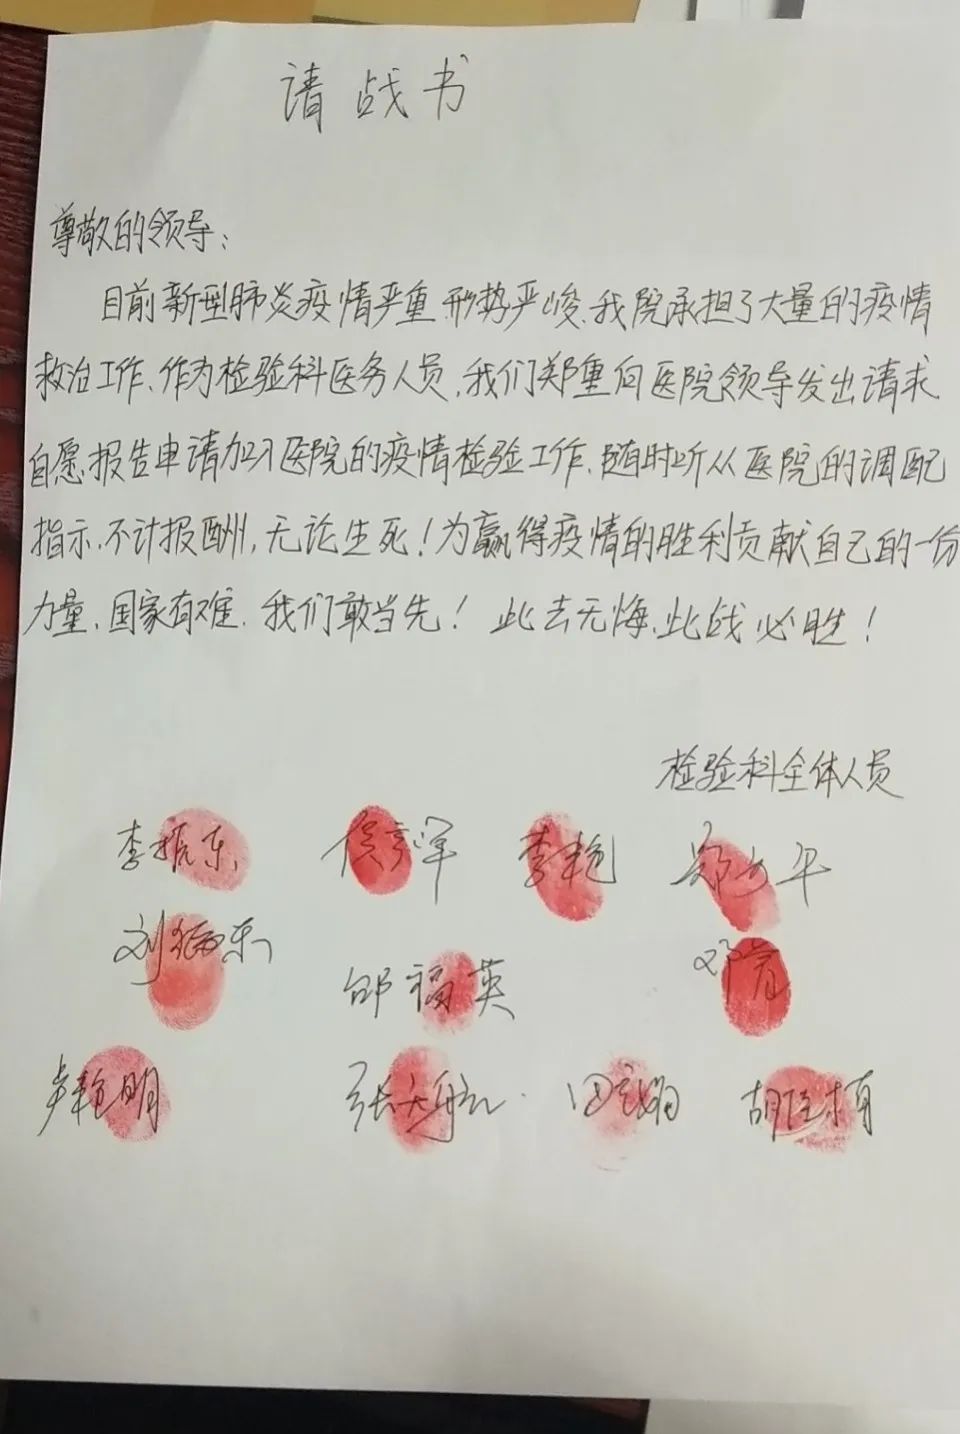 请战书
尊敬的领导:
目前新型肺炎疫情严重,形势严峻、我院承担了大量的疫情
救治工作、作为检验科医务人员,我们郑重向医院领导发出请求
自愿报告申请加入医院的疫情检验工作、随时听从医院的调配
指示、不计报酬,无论生死!为赢得疫情的胜利贡献自己的一份
力量、国家有难、我们敢当先!此去无悔、此战必胜!
检验科全体人员
李振东 李艳
邰福英